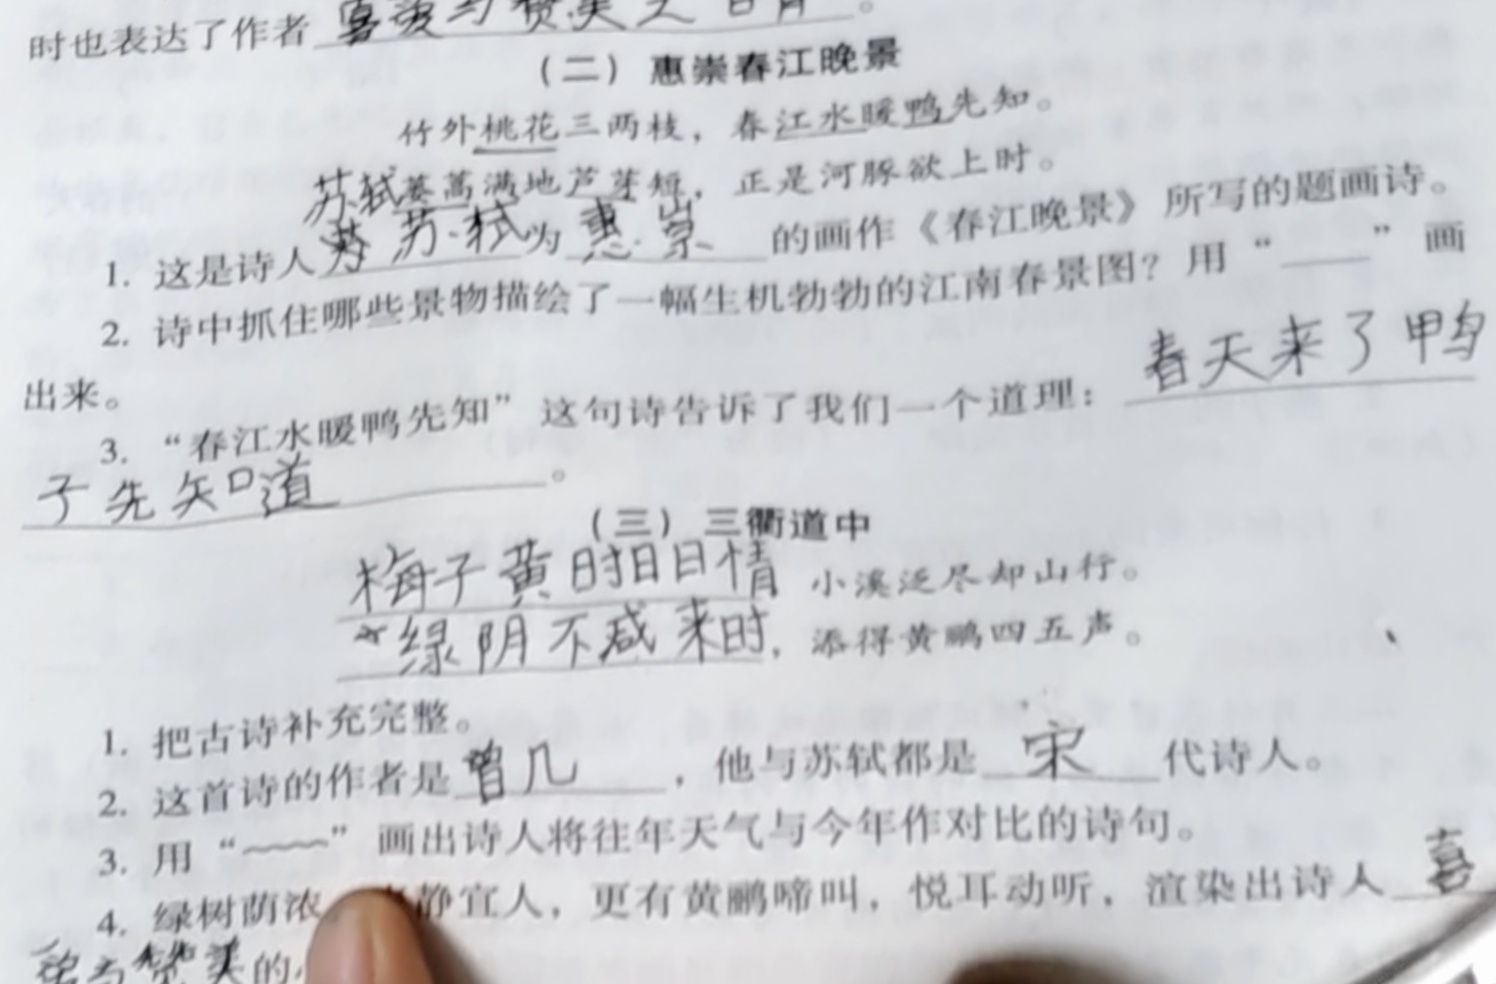 时也表达了作者喜爱与赞美之
（二）惠崇春江晚景
竹外桃花三两枝，春江水暖鸭先知。
苏轼蒌蒿满地芦芽短，正是河豚欲上时。
1. 这是诗人苏轼为惠崇的画作《春江晚景》所写的题画诗。
2. 诗中抓住哪些景物描绘了一幅生机勃勃的江南春景图？用“——”画
出来。
3. “春江水暖鸭先知”这句诗告诉了我们一个道理：春天来了鸭
子先知道。
（三）三衢道中
梅子黄时日日情 小溪泛尽却山行。
绿阴不减来时，添得黄鹂四五声。
1. 把古诗补充完整。
2. 这首诗的作者是曾几，他与苏轼都是宋代诗人。
3. 用“﹏﹏”画出诗人将往年天气与今年作对比的诗句。
4. 绿树荫浓，静宜人，更有黄鹂啼叫，悦耳动听，渲染出诗人喜
与赞美的